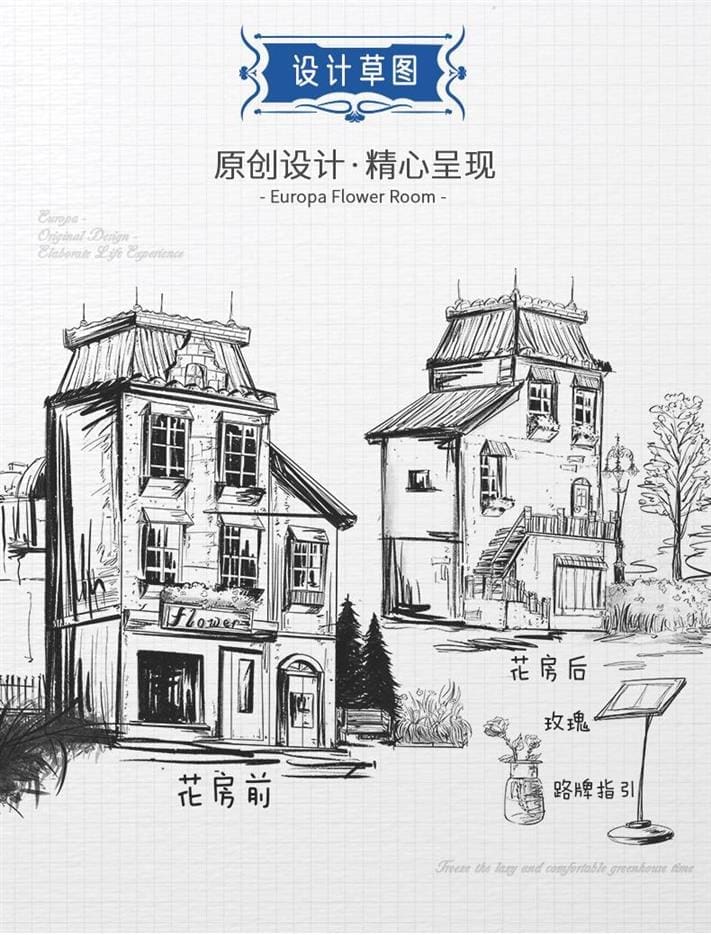 设计草图
原创设计·精心呈现
- Europa Flower Room -
Europa -
Original Design -
Elaborate Life Experience
flower
花房后
玫瑰
路牌指引
花房前
Freeze the lazy and comfortable greenhouse time